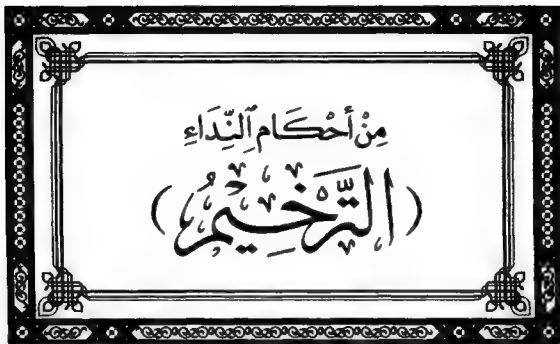 مِنْ أَحْكَامِ ٱلنِّدَاءِ
(التَّرْخِيمُ)